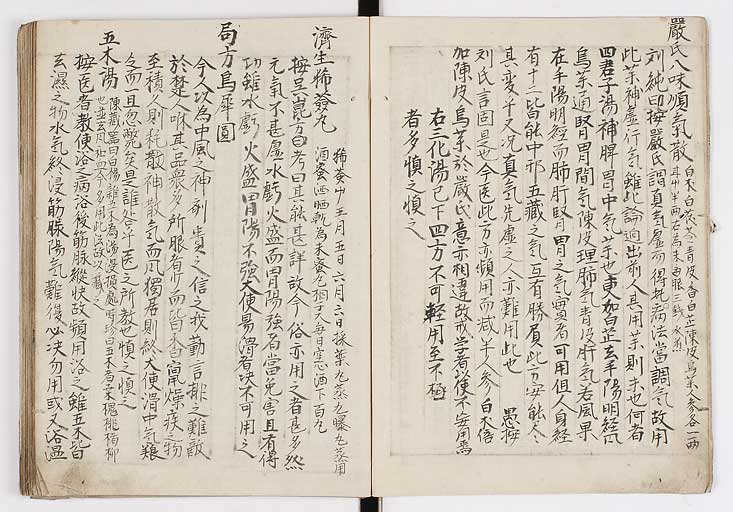 嚴氏八味順氣散 白朮白茯苓青皮香白芷陳皮烏藥人參各一兩
甘艸半兩右為末每服三錢水煎
劉純曰按嚴氏謂真氣虛而得此病法當調氣故用
此藥神虛行氣雖此論過出前人其用藥則未也何者
四君子湯補脾胃中氣藥也更加白芷去手陽明經風
烏藥通腎胃間氣陳皮理肺氣青皮肝氣若風果
在手陽明經而肺肝腎胃之氣實者可用但人身經
有十二皆能中邪五藏之氣互有勝負此方安能
其變乎又況真氣先虛之人亦難用此也 愚按
劉氏言固是也今醫此方亦頻用而減半人參白朮倍
加陳皮烏藥於嚴氏意亦相違故戒學者後不每用焉
右三化湯已下四方不可輕用至不極
者多慎之慎之
濟生豨薟丸 豨薟艸五月五日六月六日採葉九蒸九曝凡蒸用
酒蜜洒晒乾為末蜜丸桐子大每日空心酒下百丸
按吳崑方考曰其能甚詳故今俗亦用之者甚多然
元氣不甚虛水虧火盛而胃陽強者當免害且有得
功雖水虧火盛胃陽不強大便易滑者決不可用之
局方烏犀圓
今人以為中風之神劑貴之信之我勤言排之難敵
於楚人咻其品眾多所服者少而皆香竄燥疾之物
至積久則耗散神散氣而風獨居則終大便滑中氣餒
之而一旦忽斃矣是誰咎乎医之所教也慎之慎之
五木湯
按医者教使浴之病浴後筋脉縱快故頻用浴之雖五木皆
去濕之物水氣終浸筋脉陽氣難復必決勿用或又浴溫